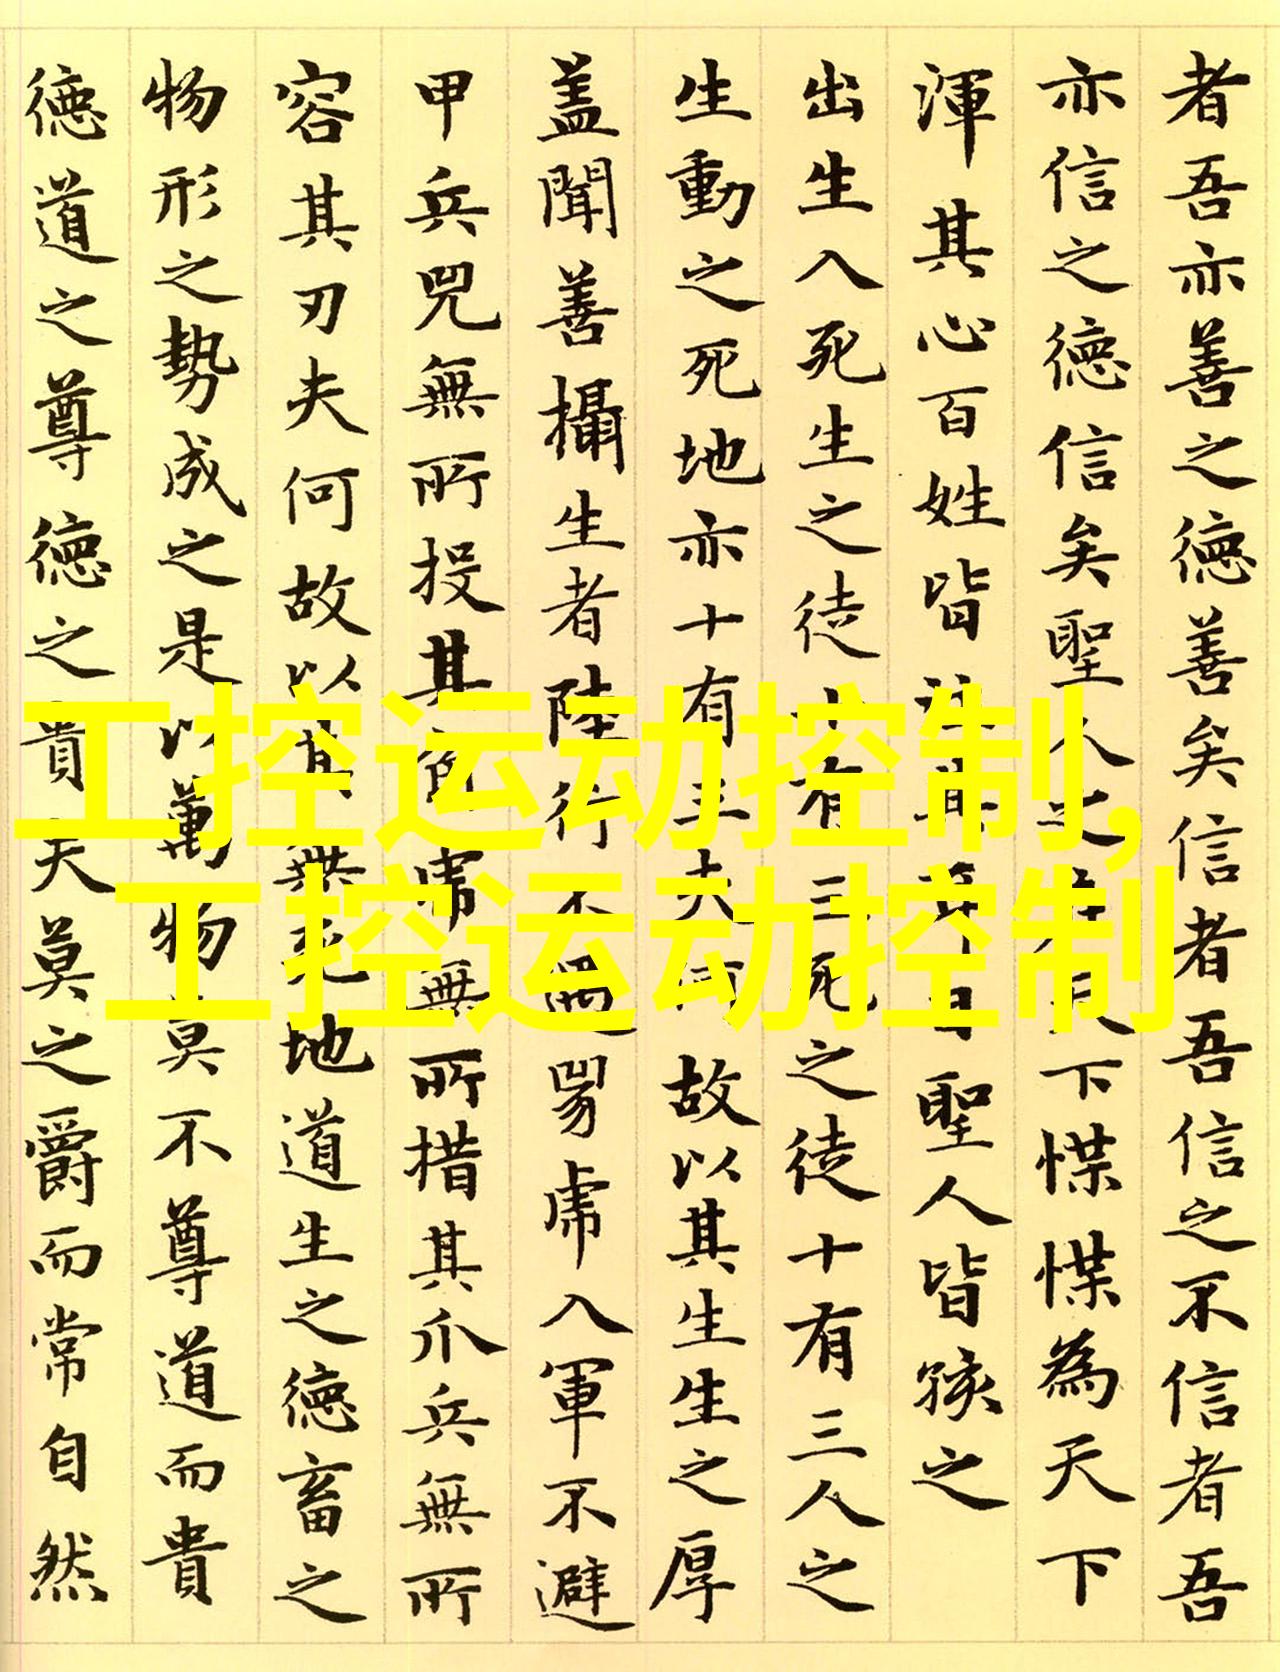 者吾亦善之德善矣信者吾信之不信者吾
亦信之德信矣聖人之在天下惵惵為天下
渾其心百姓皆注其耳目聖人皆孩之
出生入死生之徒十有三死之徒十有三人之
生動之死地亦十有三夫何故以其生生之厚
蓋聞善攝生者陸行不遇兕虎入軍不避
甲兵兕無所投其角虎無所措其爪兵無所
容其刃夫何故以其無死地道生之德畜之
物形之勢成之是以萬物莫不尊道而貴
德道之尊德之貴夫莫之爵而常自然
工控运动控制,
工控运动控制